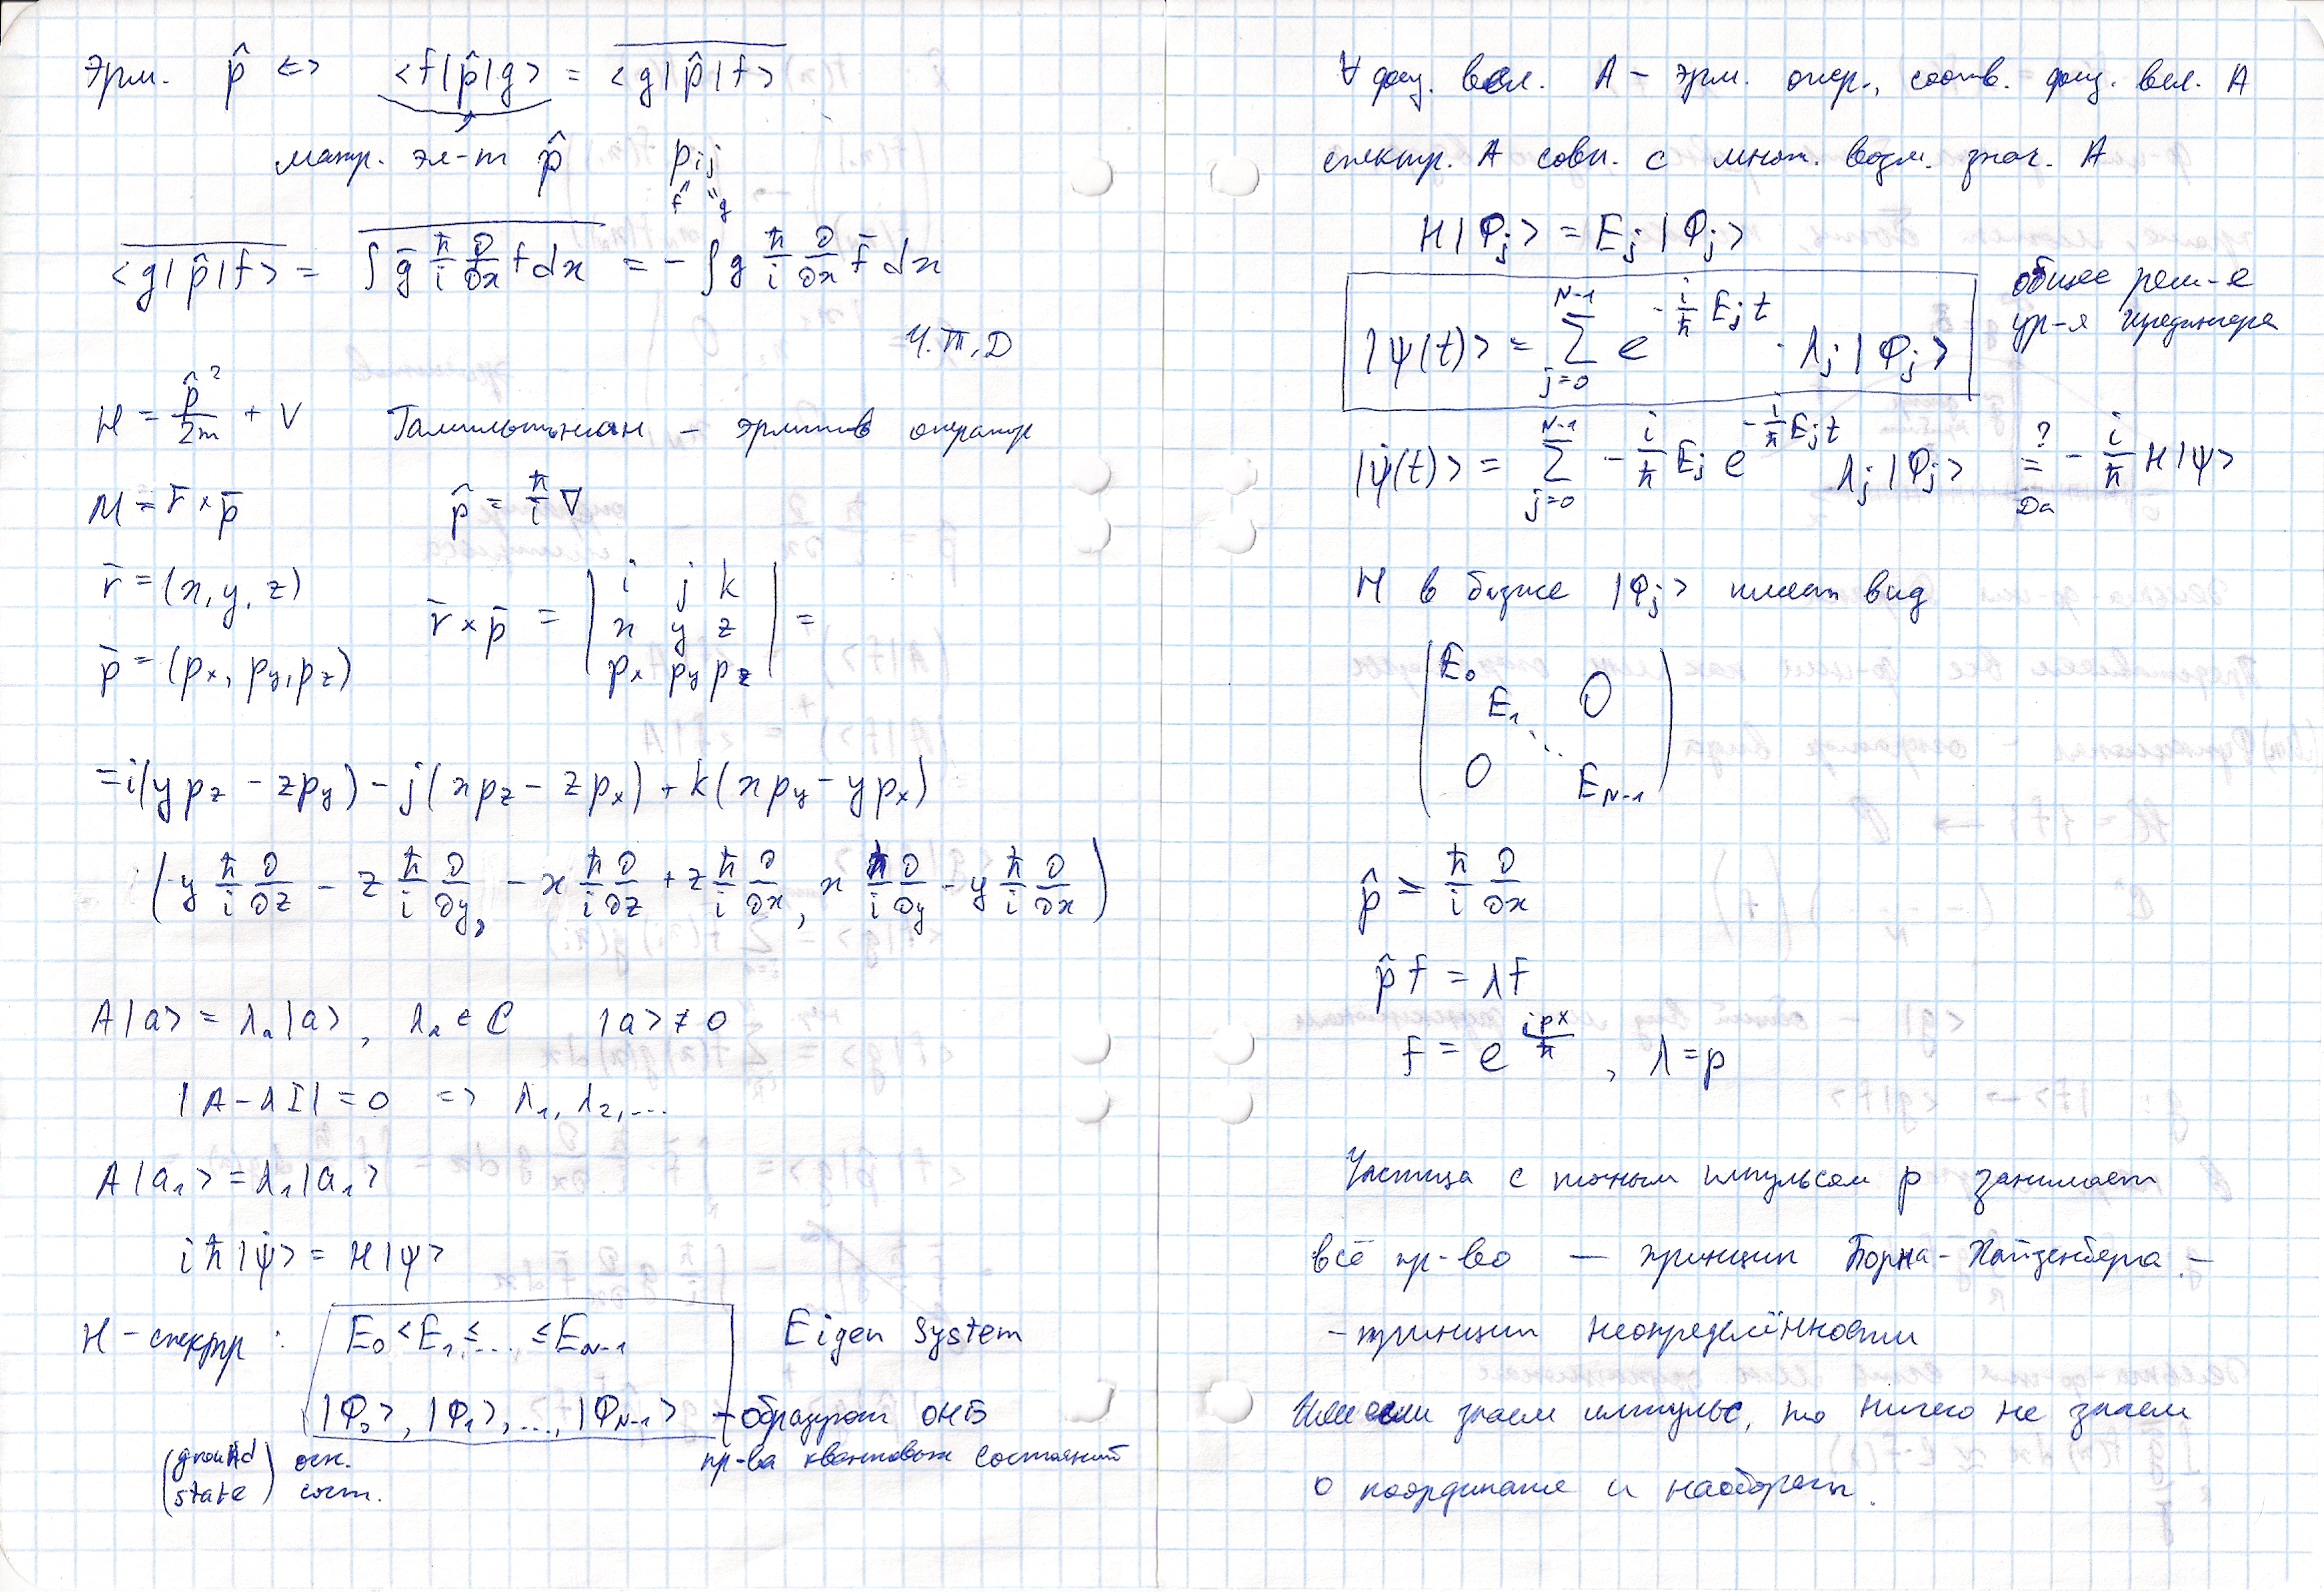 Эрм. p̂ ⟺ <f|p̂|g> = \overline{<g|p̂|f>}
матр. эл-т p̂ p_{ij}
f g
\overline{<g|p̂|f>} = \overline{∫ ḡ ħ/i ∂/∂x f dx} = - ∫ g ħ/i ∂/∂x f̄ dx
Ч.Т.Д
H = p̂²/2m + V Гамильтониан – эрмитов оператор
M = r̄ × p̄ p̂ = ħ/i ∇
r̄ = (x, y, z)
r̄ × p̄ = | i j k ; x y z ; p_x p_y p_z | =
p̄ = (p_x, p_y, p_z)
= i(y p_z - z p_y) - j(x p_z - z p_x) + k(x p_y - y p_x)
(y ħ/i ∂/∂z - z ħ/i ∂/∂y, - x ħ/i ∂/∂z + z ħ/i ∂/∂x, x ħ/i ∂/∂y - y ħ/i ∂/∂x)
A|a> = λ_a|a>, λ_a ∈ C |a> ≠ 0
|A - λI| = 0 => λ_1, λ_2, ...
A|a_1> = λ_1|a_1>
iħ|ψ̇> = H|ψ>
H - спектр: E_0 < E_1 ≤ ... ≤ E_{N-1} Eigen System
|Φ_0>, |Φ_1>, ..., |Φ_{N-1}> - образуют ОНБ
(ground state) осн. сост. пр-ва квантовых состояний
∀ физ. вел. A – эрм. опер., соотв. физ. вел. A
спектр. A совп. с множ. возм. знач. A
H|Φ_j> = E_j|Φ_j>
|ψ(t)> = Σ_{j=0}^{N-1} e^{-i/ħ E_j t} · λ_j|Φ_j> общее реш-е ур-я Шредингера
|ψ̇(t)> = Σ_{j=0}^{N-1} - i/ħ E_j e^{-i/ħ E_j t} λ_j|Φ_j> =
?
Да
- i/ħ H|ψ>
H в базисе |Φ_j> имеет вид
E_0
E_1 0
⋱
0 E_{N-1}
p̂ = ħ/i ∂/∂x
p̂ f = λf
f = e^{ipx/ħ}, λ = p
Частица с точным импульсом p занимает
всё пр-во — принцип Борна-Хайзенберга. –
– принцип неопределённости
Или если знаем импульс, то ничего не знаем
о координате и наоборот.